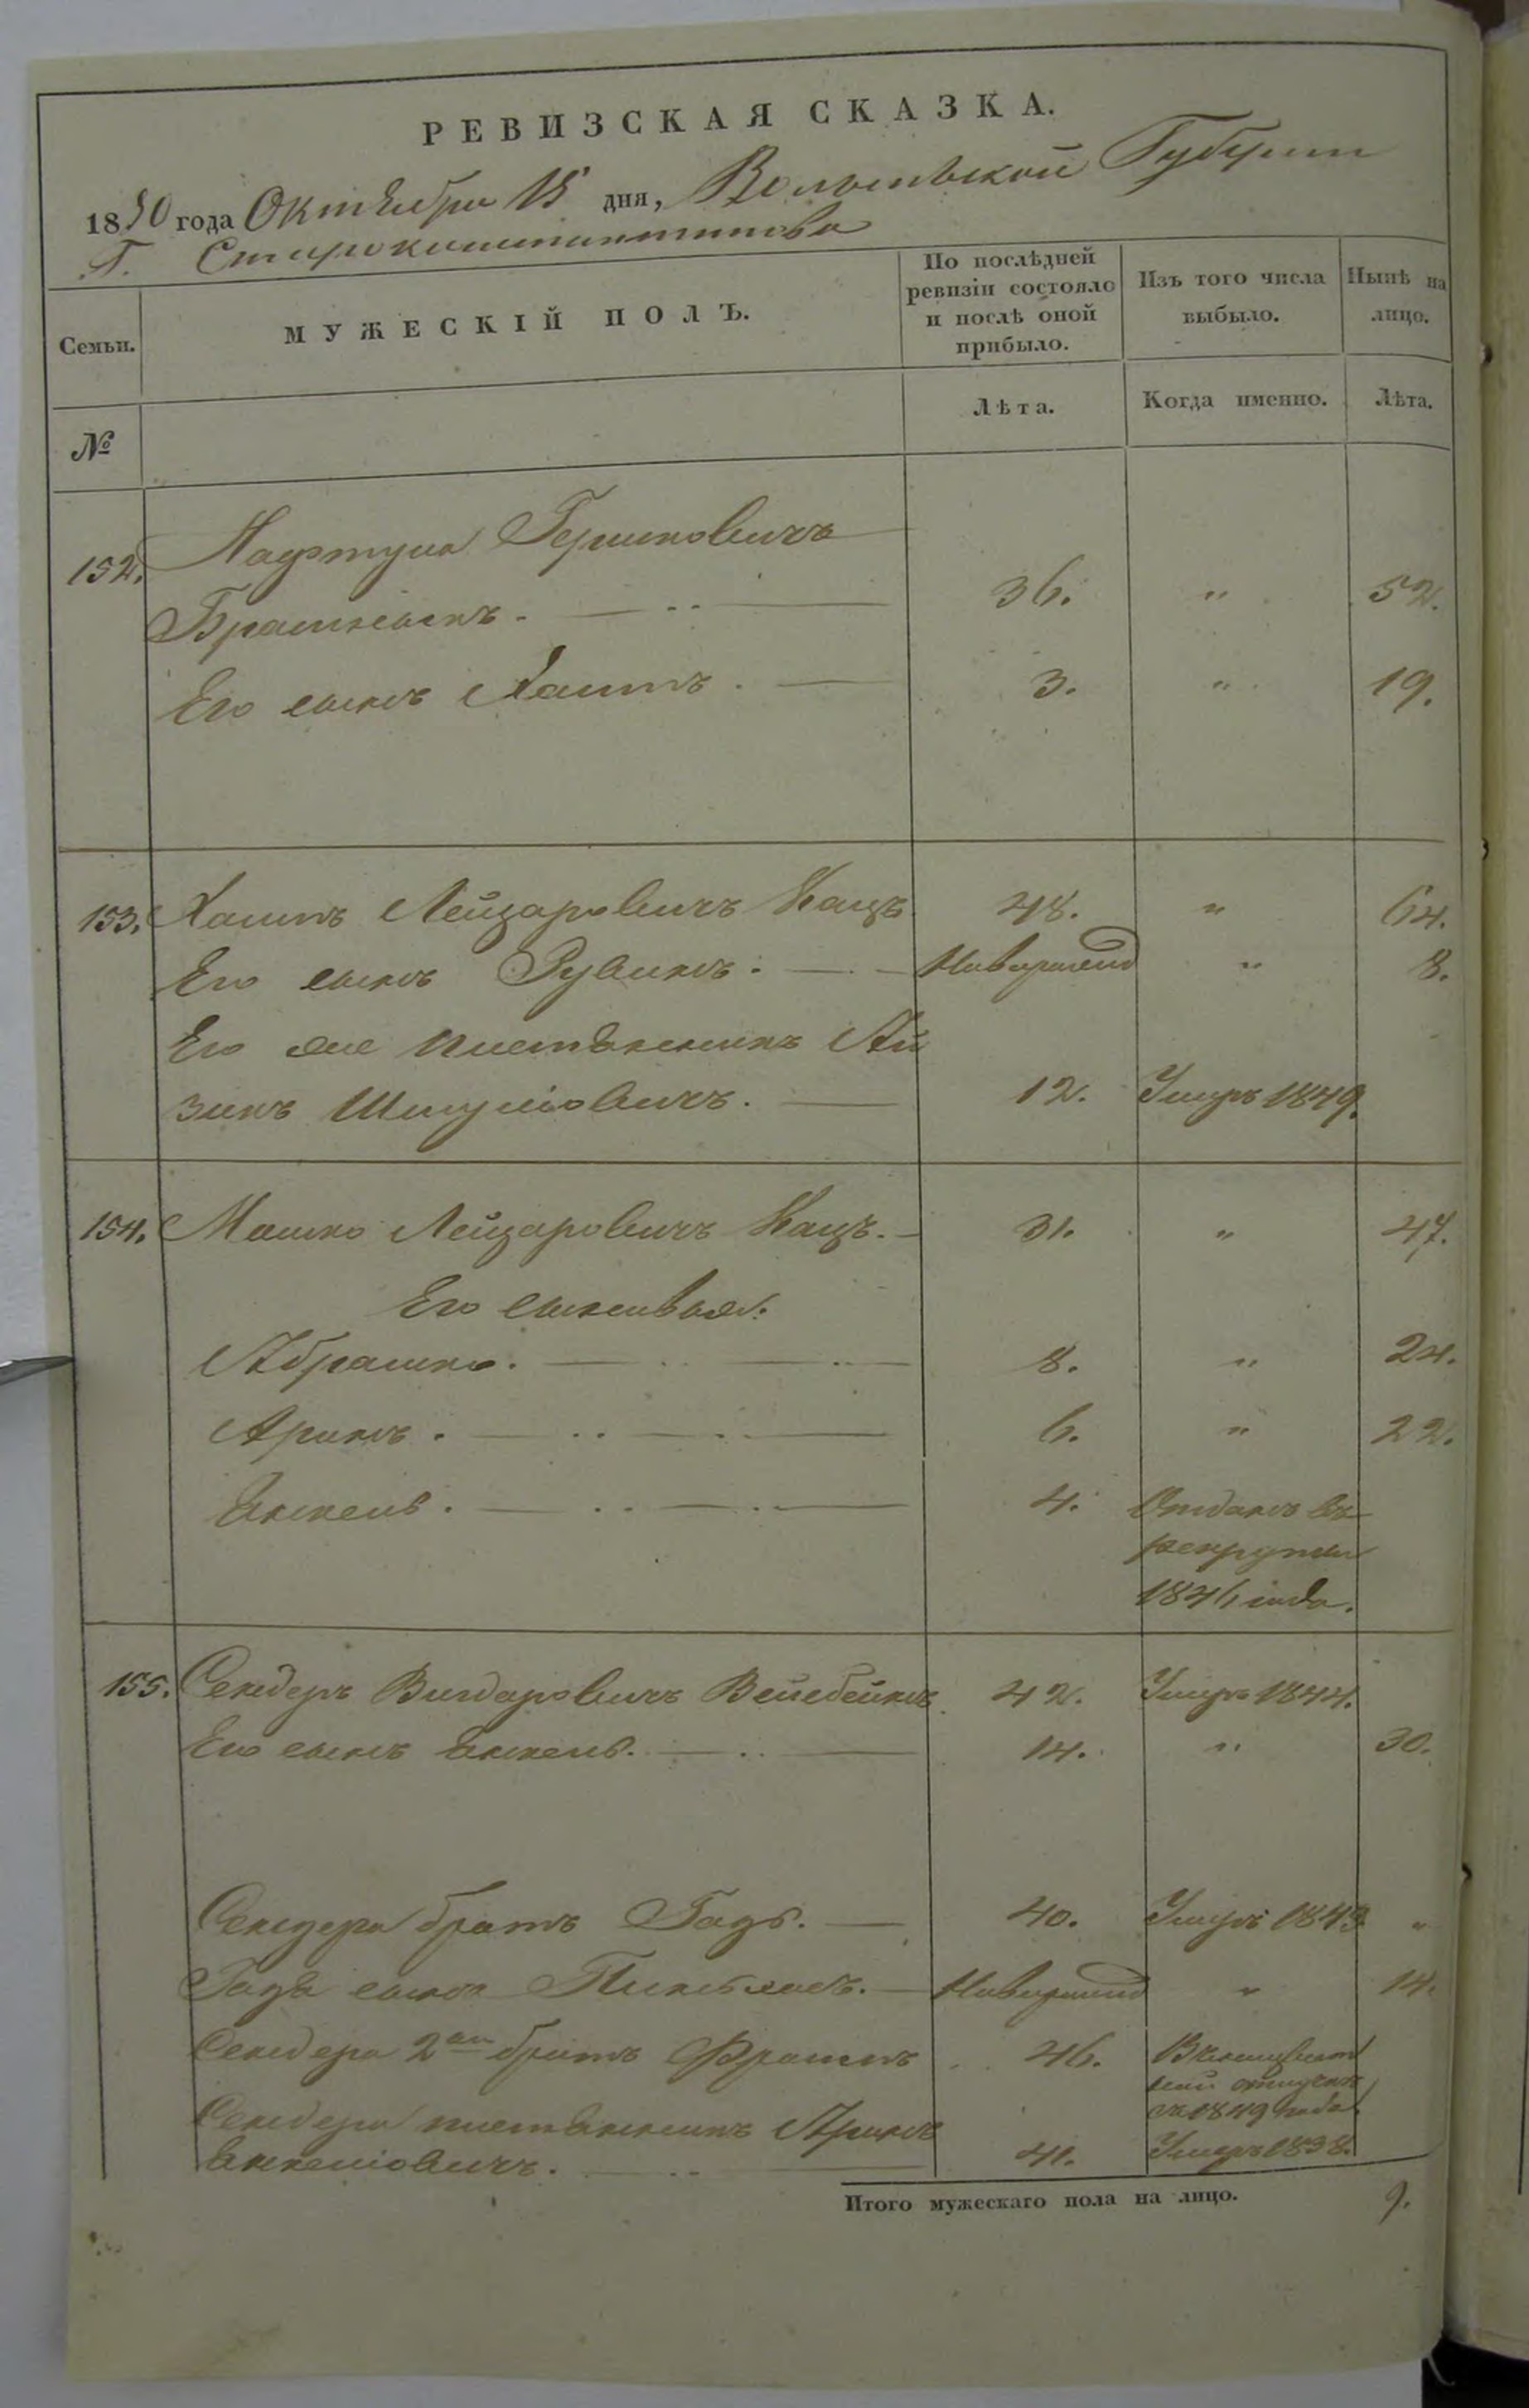 РЕВИЗСКАЯ СКАЗКА.
1850 года Октября 15 дня, Волынской Губерни
Г. Староконстантинова
Семьи.
МУЖЕСКІЙ ПОЛЪ.
По послѣдней ревизіи состояло и послѣ оной прибыло.
Изъ того числа выбыло.
Нынѣ на лицо.
№
Лѣта.
Когда именно.
Лѣта.
152. Нафтула Гершковичъ
36. " 52.
Его сынъ Хаимъ. 3. " 19.
153. Хаимъ Лейзаровичъ Кацъ 48. " 64.
Его сынъ Рувинъ. Новорожд " 8.
Его же племянникъ Ай
зикъ Шмулiовичъ. 12. Умеръ 1849.
154. Мошко Лейзаровичъ Кацъ. 31. " 47.
Его сыновья:
Абрашко. 8. " 24.
Аронъ. 6. " 22.
Янкель. 4. Отданъ въ
рекруты
1846 года.
155. Сендеръ Вигдаровичъ 42. Умеръ 1844.
Его сынъ Янкель. 14. " 30.
Сендера братъ Гадъ. 40. Умеръ 1843 "
Гада сынъ Пинхасъ. Новорожд " 14.
Сендера 2ой братъ Фроимъ 46.
съ 1849 года
Сендера племянникъ Аронъ
Янкелiовичъ. 41. Умеръ 1838.
Итого мужескаго пола на лицо. 9.